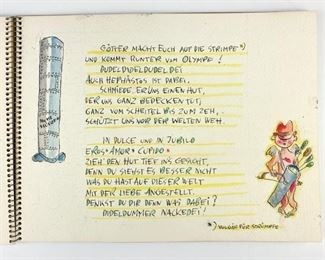 GÖTTER MACHT EUCH AUF DIE STRIMPE *)
UND KOMMT RUNTER VOM OLYMPE!
DUDELDIDELDUDELDEI
AUCH HEPHÄSTOS IST DABEI.
SCHMIEDE, ER UNS EINEN HUT,
DER UNS GANZ BEDECKEN TUT,
GANZ VOM SCHEITEL BIS ZUM ZEH,
SCHÜTZT UNS VOR DER WELTEN WEH.
IN DULCE UND IN JUBILO
EROS * AMOR * CUPIDO *
ZIEH DEN HUT TIEF INS GESICHT,
DENN DU SIEHST ES BESSER NICHT
WAS DU HAST AUF DIESER WELT
MIT DER LIEBE ANGESTELLT.
DENKST DU DIR DENN WAS DABEI?
DIDELDUMMER NACKEDEI!
*) VULGO: FÜR STRÜMPFE